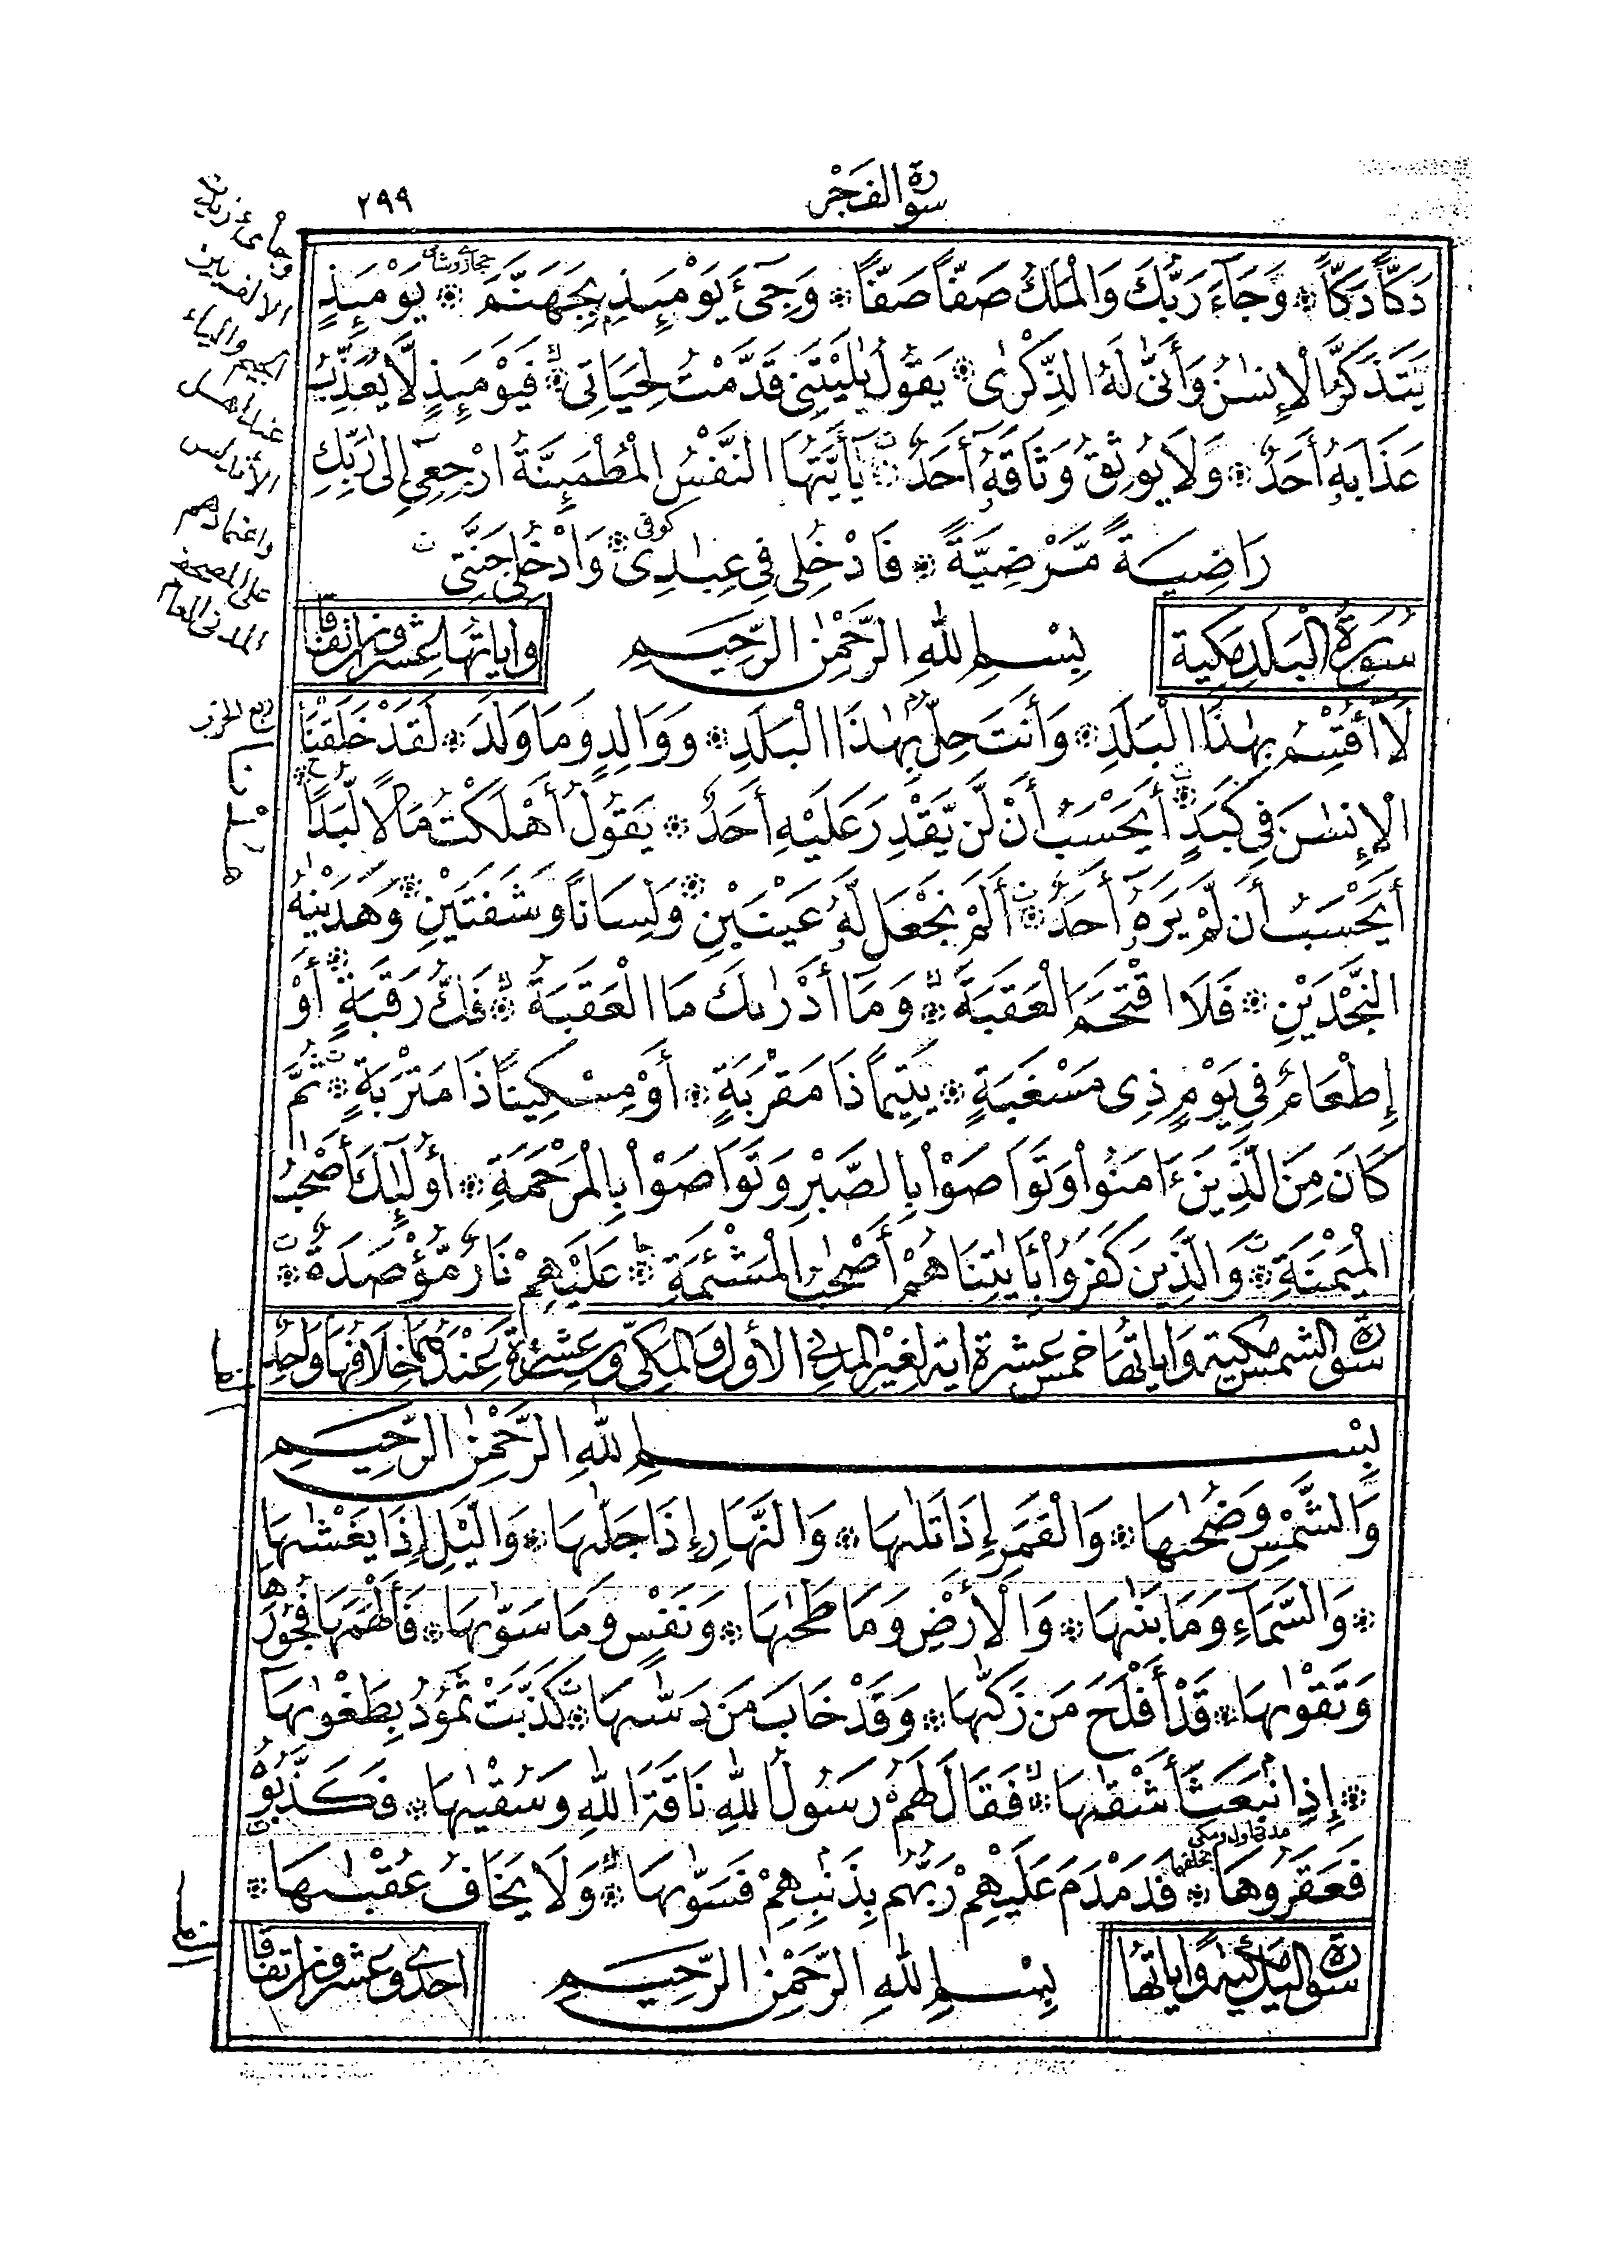 سورة الفجر
٢٩٩
دَكًّا دَكًّا ۞ وَجَآءَ رَبُّكَ وَالْمَلَكُ صَفًّا صَفًّا ۞ وَجِىٓءَ يَوْمَئِذِۭ بِجَهَنَّمَ ۞ يَوْمَئِذٍ
حجازى وشامى
يَتَذَكَّرُ الْإِنسَٰنُ وَأَنَّىٰ لَهُ الذِّكْرَىٰ ۞ يَقُولُ يَٰلَيْتَنِى قَدَّمْتُ لِحَيَاتِى ۞ فَيَوْمَئِذٍ لَّا يُعَذِّبُ
عَذَابَهُۥٓ أَحَدٌ ۞ وَلَا يُوثِقُ وَثَاقَهُۥٓ أَحَدٌ ۞ يَٰٓأَيَّتُهَا النَّفْسُ الْمُطْمَئِنَّةُ ارْجِعِىٓ إِلَىٰ رَبِّكِ
كوفى
رَاضِيَةً مَّرْضِيَّةً ۞ فَادْخُلِى فِى عِبَٰدِى ۞ وَادْخُلِى جَنَّتِى
سُورَةُ الْبَلَدِ مَكِيَّة
بِسْمِ اللَّهِ الرَّحْمَٰنِ الرَّحِيمِ
وَاٰيَاتُهَا عِشْرُونَ اتِّفَاقًا
لَآ أُقْسِمُ بِهَٰذَا الْبَلَدِ ۞ وَأَنتَ حِلٌّۢ بِهَٰذَا الْبَلَدِ ۞ وَوَالِدٍ وَمَا وَلَدَ ۞ لَقَدْ خَلَقْنَا
الْإِنسَٰنَ فِى كَبَدٍ ۞ أَيَحْسَبُ أَن لَّن يَقْدِرَ عَلَيْهِ أَحَدٌ ۞ يَقُولُ أَهْلَكْتُ مَالًا لُّبَدًا ۞
أَيَحْسَبُ أَن لَّمْ يَرَهُۥٓ أَحَدٌ ۞ أَلَمْ نَجْعَل لَّهُۥ عَيْنَيْنِ ۞ وَلِسَانًا وَشَفَتَيْنِ ۞ وَهَدَيْنَٰهُ
النَّجْدَيْنِ ۞ فَلَا اقْتَحَمَ الْعَقَبَةَ ۞ وَمَآ أَدْرَىٰكَ مَا الْعَقَبَةُ ۞ فَكُّ رَقَبَةٍ ۞ أَوْ
إِطْعَامٌ فِى يَوْمٍ ذِى مَسْغَبَةٍ ۞ يَتِيمًا ذَا مَقْرَبَةٍ ۞ أَوْ مِسْكِينًا ذَا مَتْرَبَةٍ ۞ ثُمَّ
كَانَ مِنَ الَّذِينَ ءَامَنُوا وَتَوَاصَوْا بِالصَّبْرِ وَتَوَاصَوْا بِالْمَرْحَمَةِ ۞ أُولَٰٓئِكَ أَصْحَٰبُ
الْمَيْمَنَةِ ۞ وَالَّذِينَ كَفَرُوا بِـَٔايَٰتِنَا هُمْ أَصْحَٰبُ الْمَشْـَٔمَةِ ۞ عَلَيْهِمْ نَارٌ مُّؤْصَدَةٌ ۞
سورة الشمس مكية وَاٰيَاتُهَا خَمْسَ عَشْرَةَ اٰيَة لِغَيْرِ الْمَدَنِىِّ الْأَوَّلِ وَالْمَكِّىِّ وَسِتَّ عَشْرَةَ عِنْدَهُمَا خِلَافُهَا وَاحِدٌ
بِسْمِ اللَّهِ الرَّحْمَٰنِ الرَّحِيمِ
وَالشَّمْسِ وَضُحَىٰهَا ۞ وَالْقَمَرِ إِذَا تَلَىٰهَا ۞ وَالنَّهَارِ إِذَا جَلَّىٰهَا ۞ وَالَّيْلِ إِذَا يَغْشَىٰهَا
۞ وَالسَّمَآءِ وَمَا بَنَىٰهَا ۞ وَالْأَرْضِ وَمَا طَحَىٰهَا ۞ وَنَفْسٍ وَمَا سَوَّىٰهَا ۞ فَأَلْهَمَهَا فُجُورَهَا
وَتَقْوَىٰهَا ۞ قَدْ أَفْلَحَ مَن زَكَّىٰهَا ۞ وَقَدْ خَابَ مَن دَسَّىٰهَا ۞ كَذَّبَتْ ثَمُودُ بِطَغْوَىٰهَآ
۞ إِذِ انۢبَعَثَ أَشْقَىٰهَا ۞ فَقَالَ لَهُمْ رَسُولُ اللَّهِ نَاقَةَ اللَّهِ وَسُقْيَٰهَا ۞ فَكَذَّبُوهُ
مدنى اول ومكى بخلفهما
فَعَقَرُوهَا ۞ فَدَمْدَمَ عَلَيْهِمْ رَبُّهُم بِذَنۢبِهِمْ فَسَوَّىٰهَا ۞ وَلَا يَخَافُ عُقْبَٰهَا ۞
سورة اليل مكية وَاٰيَاتُهَا
بِسْمِ اللَّهِ الرَّحْمَٰنِ الرَّحِيمِ
احدى وعشرون اتفاقا
وجاىء زيدت
الألف بين
الجيم والياء
عند أهل
الأندلس
واعتمادهم
على المصحف
المدنى العام
ربع الحزب